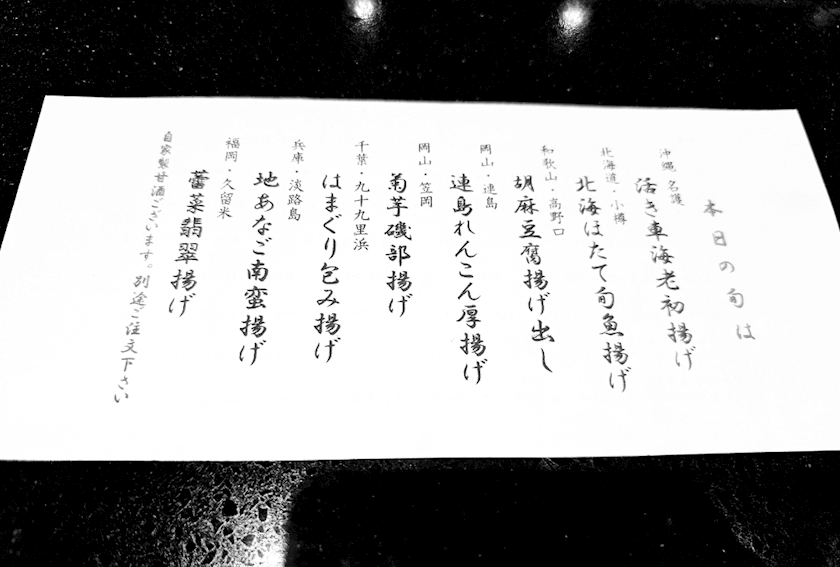 本日の旬は
沖縄 名護
活き車海老初揚げ
北海道・小樽
北海ほたて旬魚揚げ
和歌山・高野口
胡麻豆腐揚げ出し
岡山・連島
連島れんこん厚揚げ
岡山・笠岡
菊芋磯部揚げ
千葉・九十九里浜
はまぐり包み揚げ
兵庫・淡路島
地あなご南蛮揚げ
福岡・久留米
蕾菜翡翠揚げ
自家製甘酒ございます。別途ご注文下さい